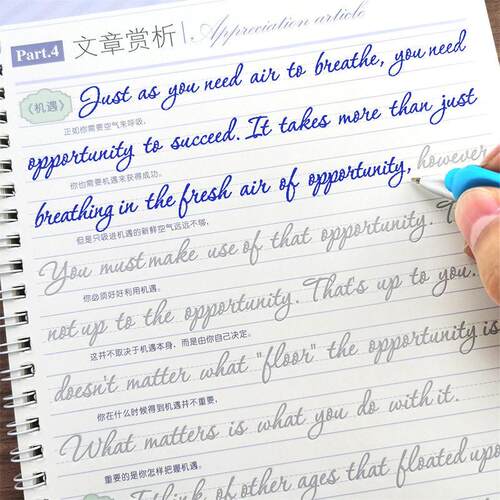 Part.4 文章赏析 Appreciation article
《机遇》 Just as you need air to breathe, you need
正如你需要空气来呼吸,
opportunity to succeed. It takes more than just
你也需要机遇来获得成功。
breathing in the fresh air of opportunity, however
但是只吸进机遇的新鲜空气远远不够,
You must make use of that opportunity.
你必须好好利用机遇。
not up to the opportunity. That's up to you.
这并不取决于机遇本身,而是由你自己决定。
doesn't matter what "floor" the opportunity is
你在什么时候得到机遇并不重要,
What matters is what you do with it.
重要的是你怎样把握机遇。
Think of other ages that floated upo